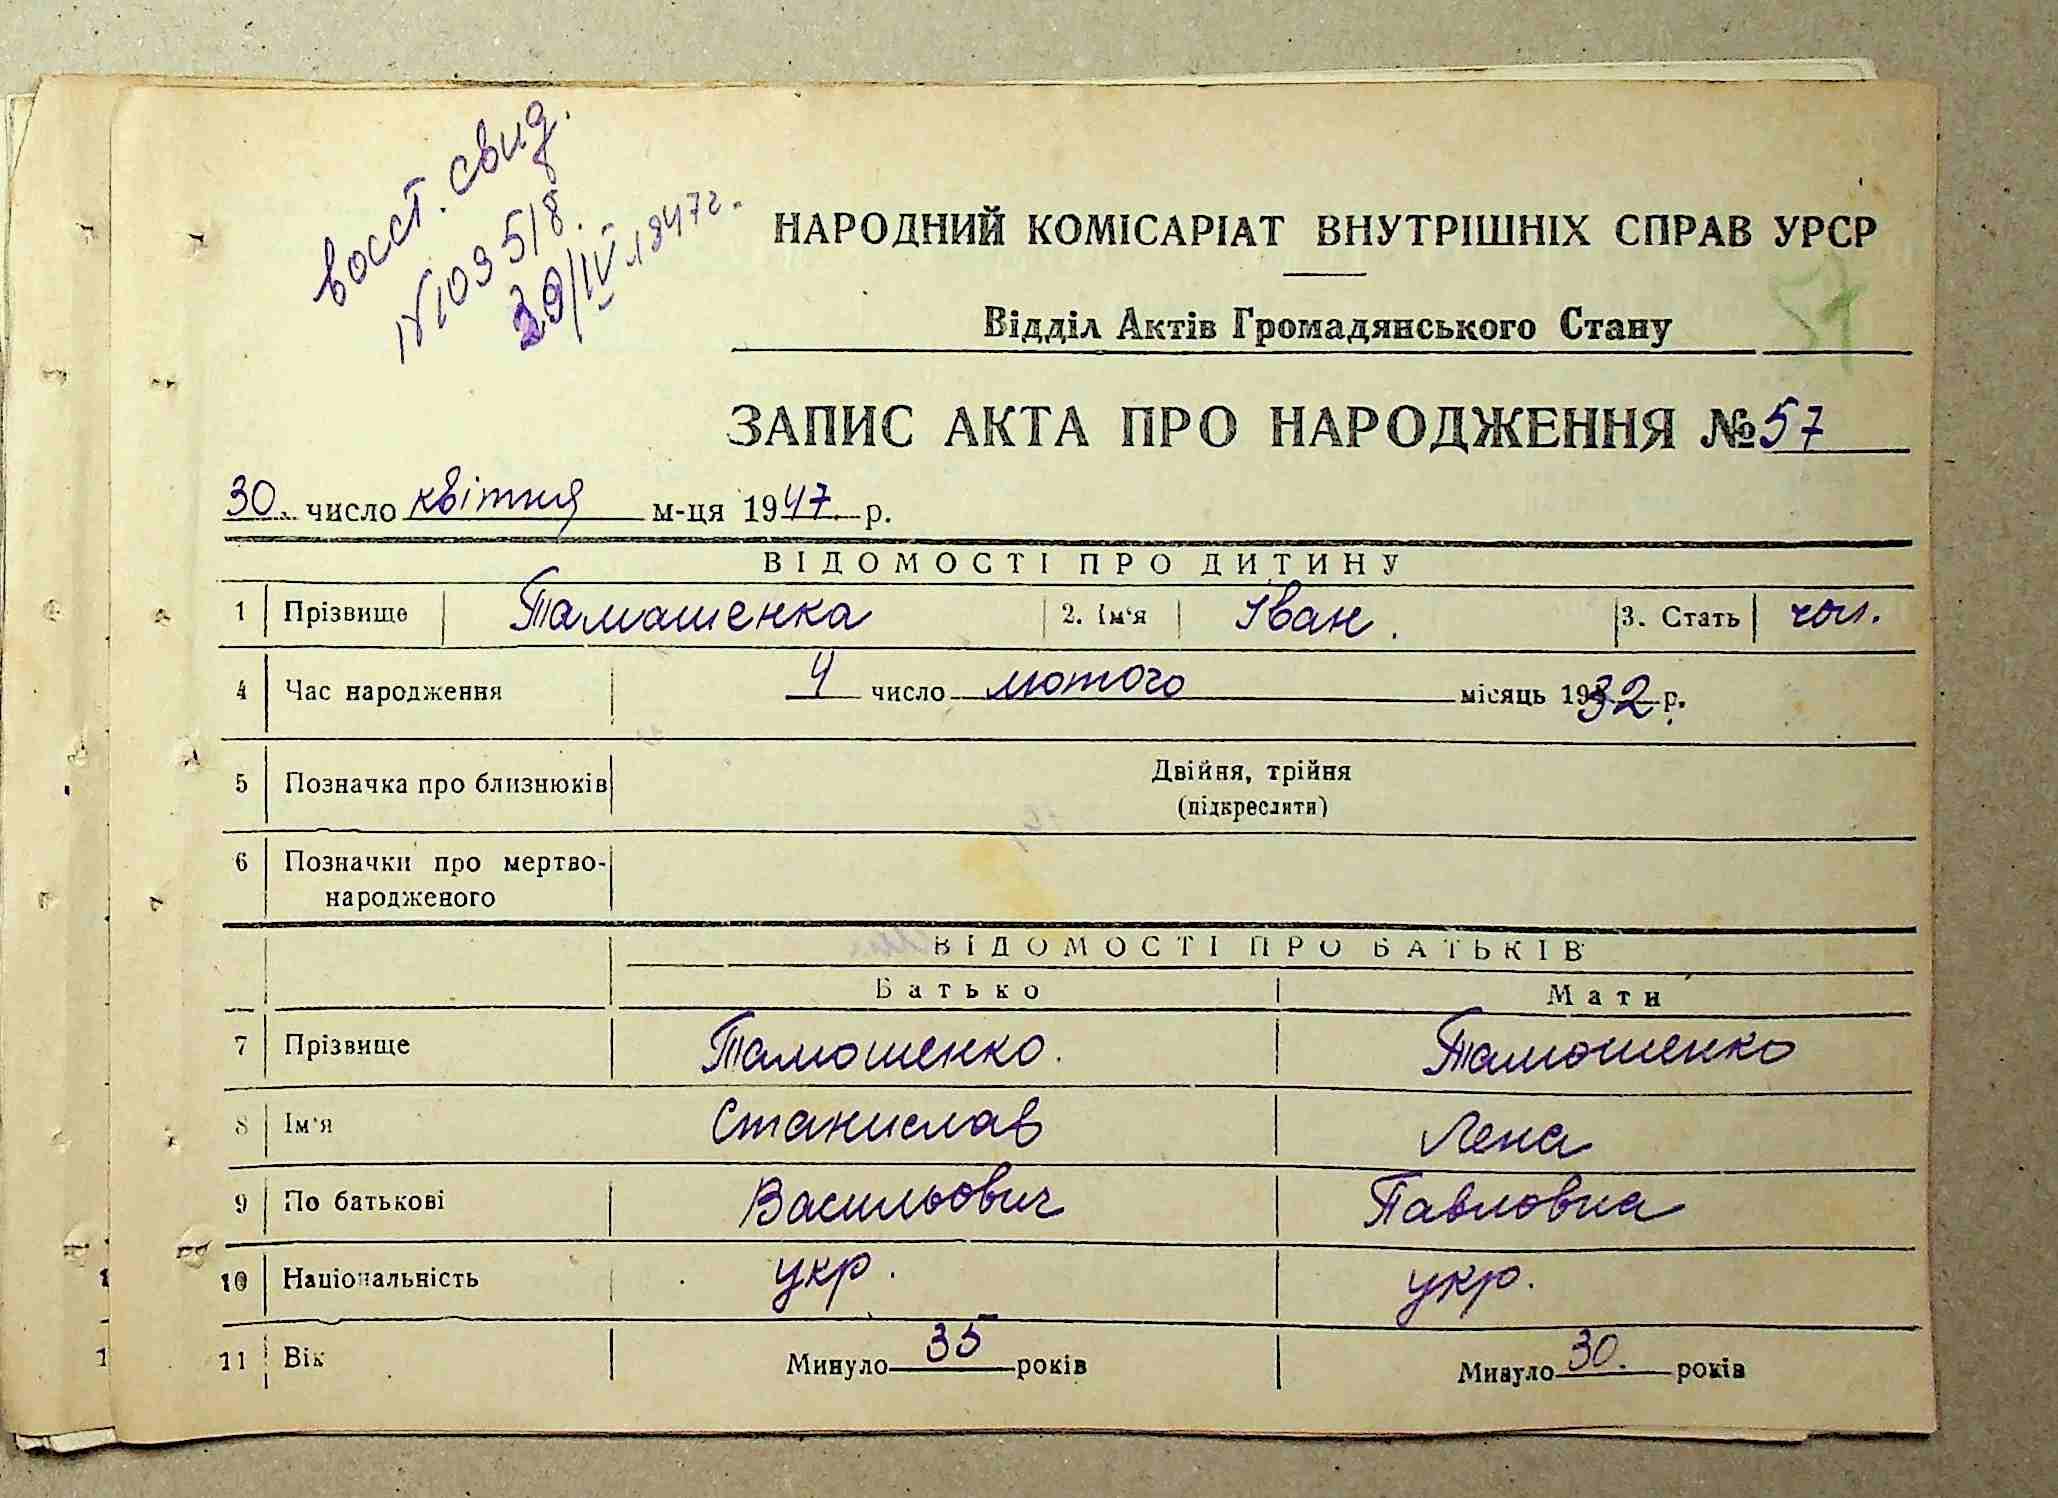 восст. свид.
№ 103518.
30/IV-1947г.
НАРОДНИЙ КОМІСАРІАТ ВНУТРІШНІХ СПРАВ УРСР
Відділ Актів Громадянського Стану
57
ЗАПИС АКТА ПРО НАРОДЖЕННЯ № 57
30. число квітня м-ця 1947 р.
ВІДОМОСТІ ПРО ДИТИНУ
1 Прізвище Тамашенка 2. Ім'я Іван. 3. Стать чол.
4 Час народження 4 число лютого місяць 1932 р.
5 Позначка про близнюків Двійня, трійня
(підкреслити)
6 Позначки про мертво-
народженого
ВІДОМОСТІ ПРО БАТЬКІВ
Батько Мати
7 Прізвище Тамошенко. Тамошенко
8 Ім'я Станислав Лена
9 По батькові Васильович Павловна
10 Національність укр. укр.
11 Вік Минуло 35 років Минуло 30. років